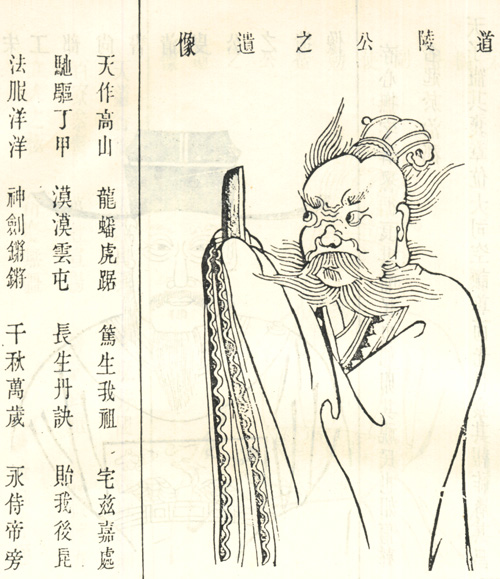 道陵公之遺像
天作高山 龍蟠虎踞 篤生我祖 宅茲嘉處
馳驅丁甲 漠漠雲屯 長生丹訣 貽我後昆
法服洋洋 神劍鏘鏘 千秋萬歲 永侍帝旁